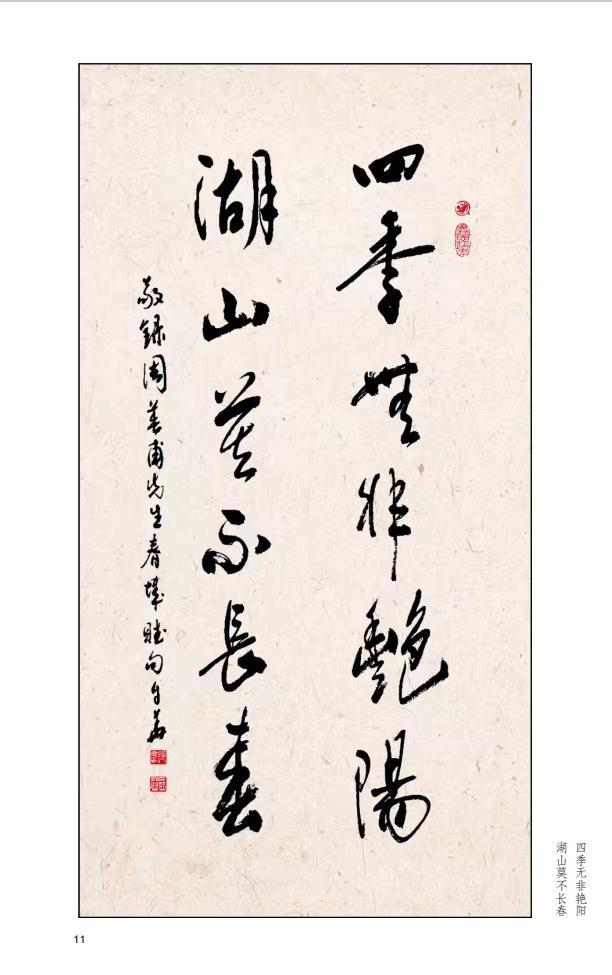 四季無非艷陽
湖山莫不長春
敬錄周美甫先生春城賦句
四季无非艳阳
湖山莫不长春
11